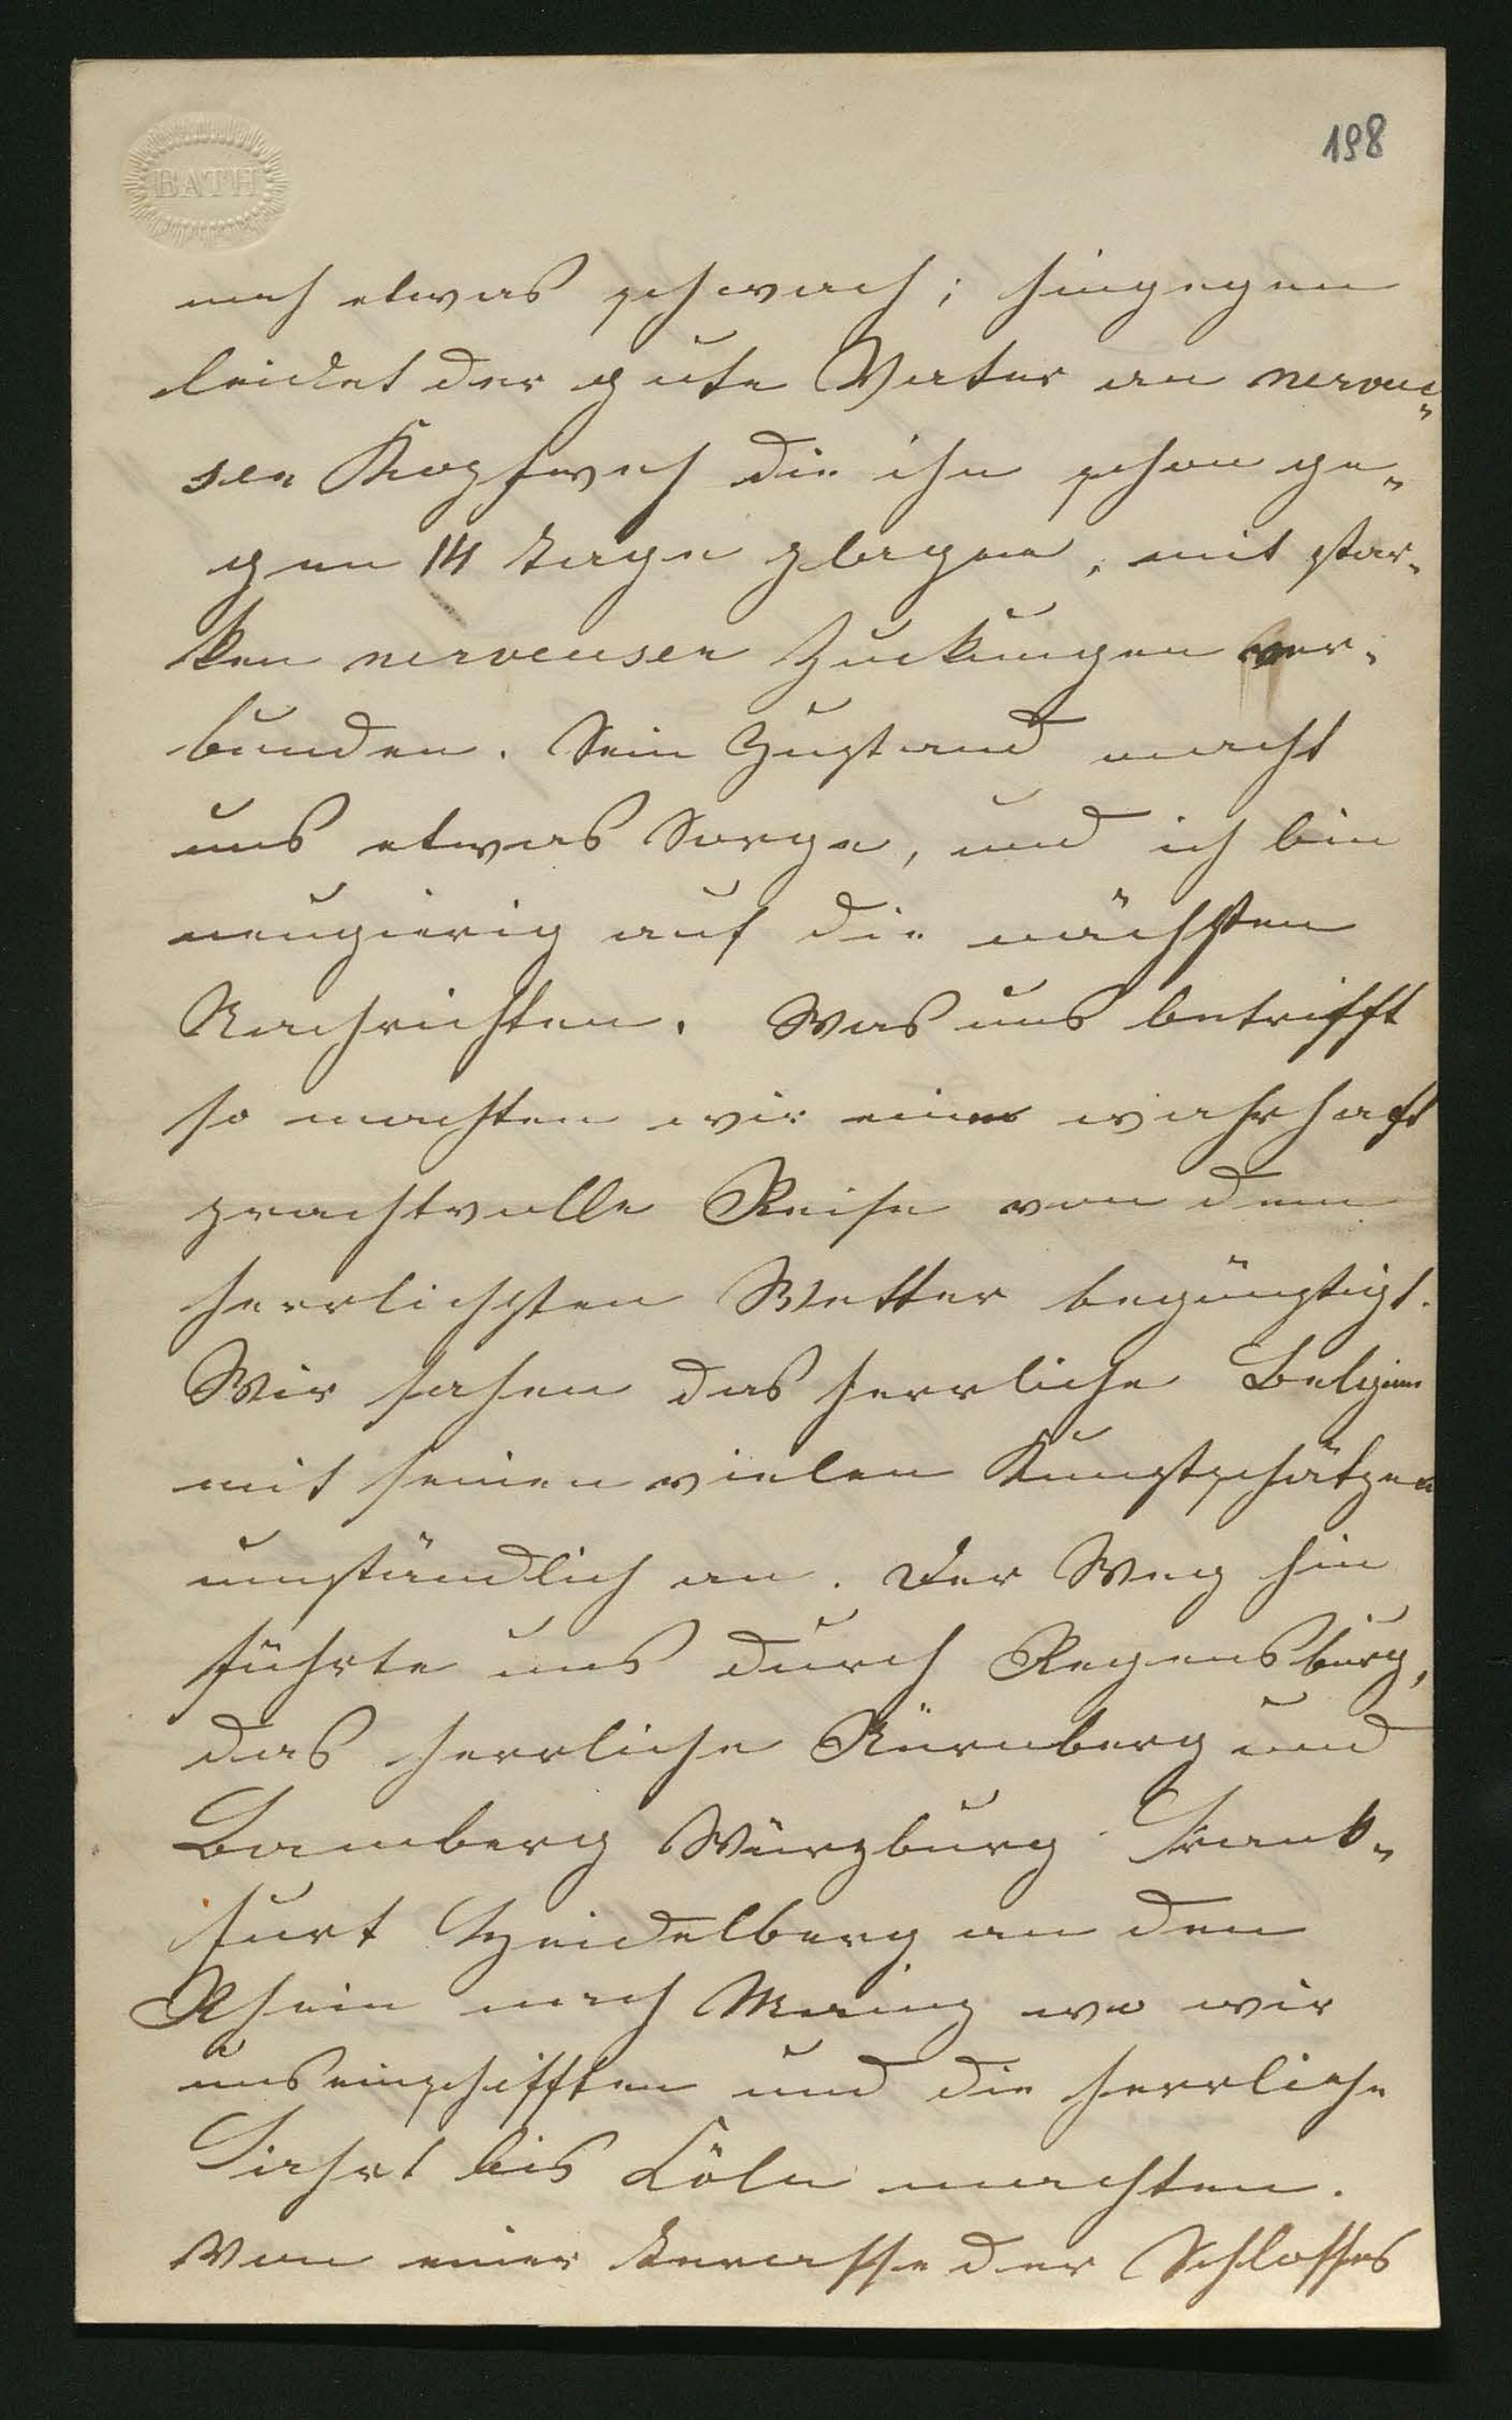 BATH
198
noch etwas schwach; hingegen
leidet der gute Vater an nerveu„
sen Kopfweh die ihn schon ge„
gen 14 Tage plagen, mit star„
ken nerveusen Zuckungen ver„
bunden. Sein Zustand macht
uns etwas Sorge, und ich bin
neugierig auf die nächsten
Nachrichten. Was uns betrifft
so machten wir eine wahrhaft
prachtvolle Reise von dem
herrlichsten Wetter begünstigt.
Wir sahen das herrliche Belgien
mit seinen vielen Kunstschätzen
umständlich an. Der Weg hin
führte uns durch Regensburg,
das herrliche Nürnberg und
Bamberg Würzburg Frank„
furt Heidelberg an den
Rhein nach Mainz wo wir
uns einschifften und die herrliche
Fahrt bis Cöln machten.
Von einer Terasse der Schlosses